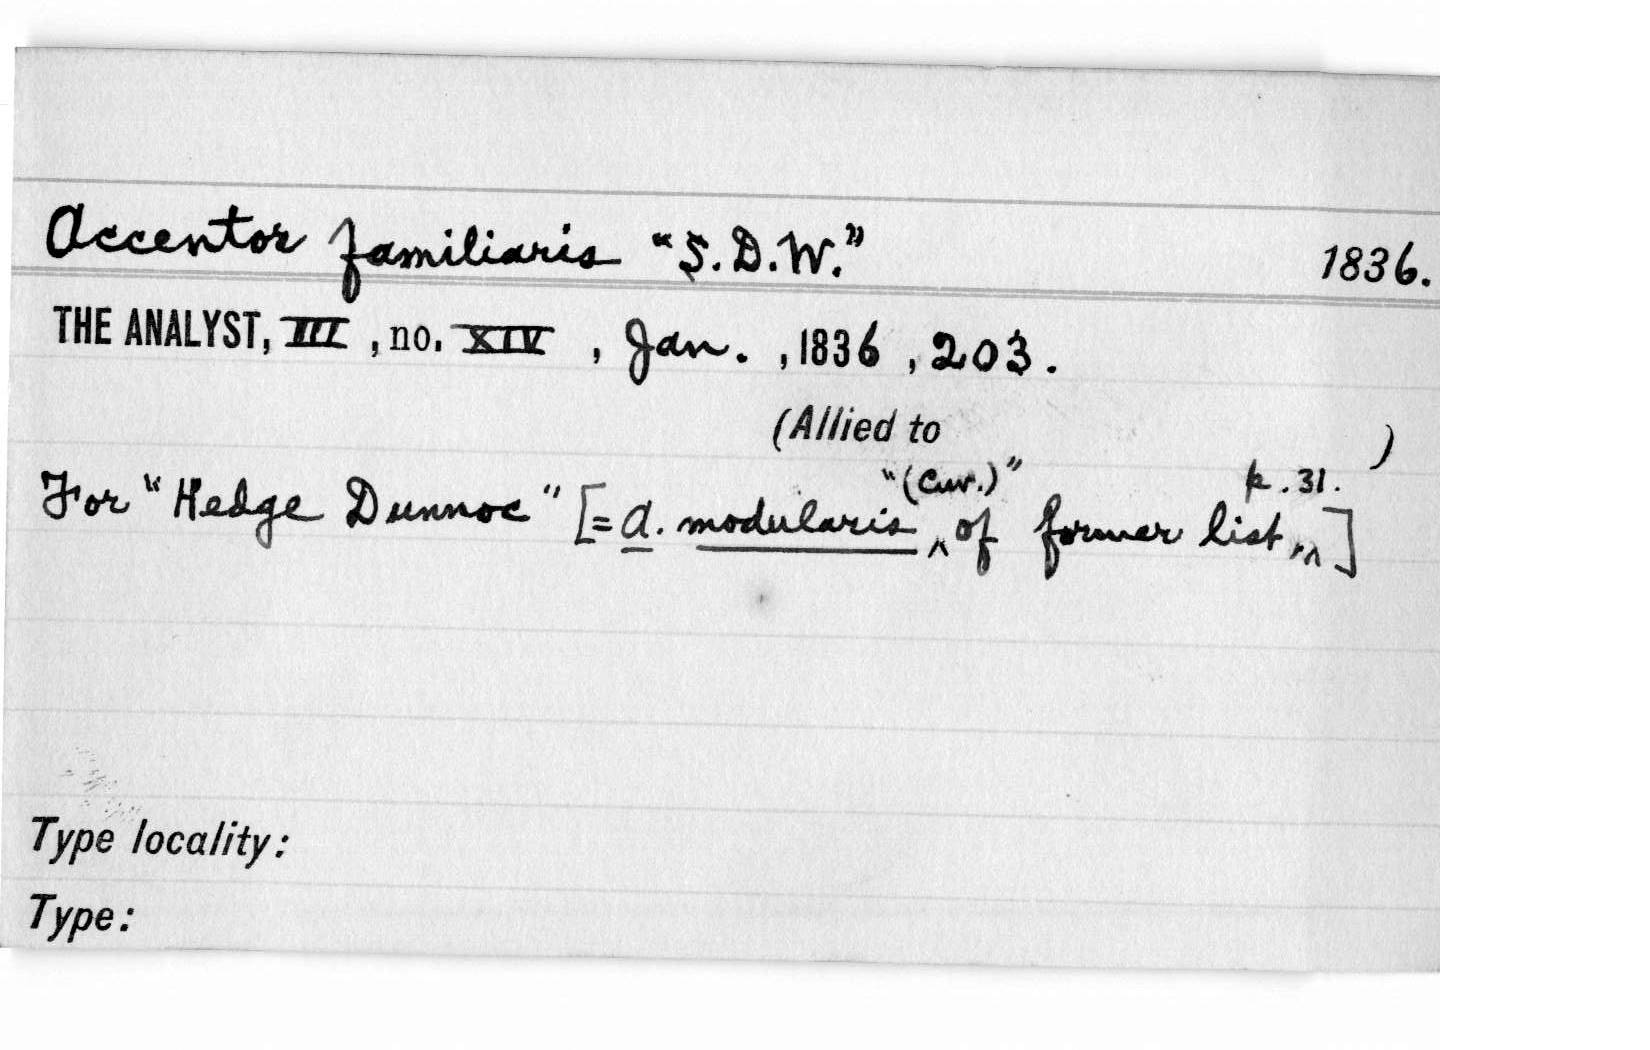 Accentor familiaris "S.D.W." 1836.
THE ANALYST, III, no. XIV, Jan., 1836, 203.
(Allied to )
For "Hedge Dunnoc" [= A. modularis "(Cuv.)" of former list, p. 31.]
Type locality:
Type: